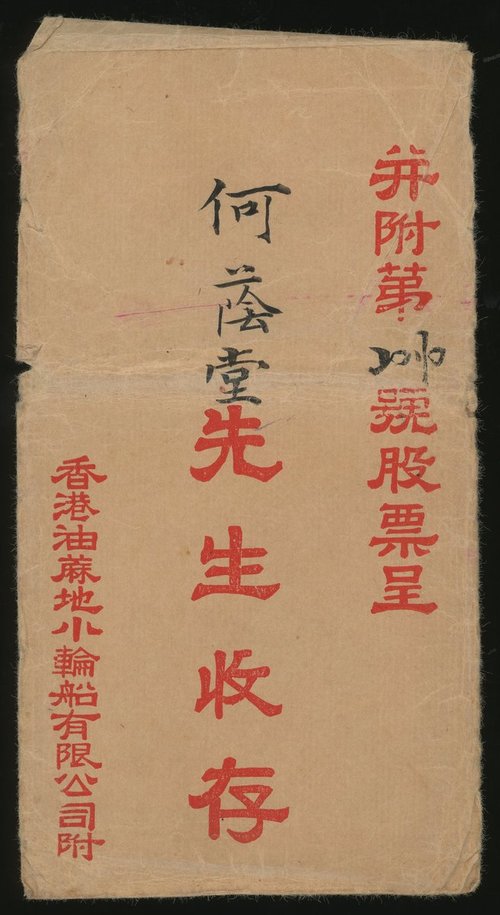 并附第 號股票呈
何蔭堂先生收存
香港油蔴地小輪船有限公司附